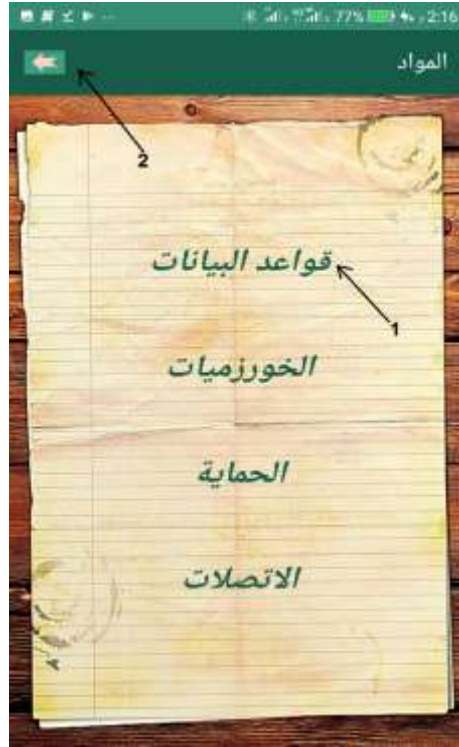 77% 2:16
المواد
2
قواعد البيانات
1
الخورزميات
الحماية
الاتصلات